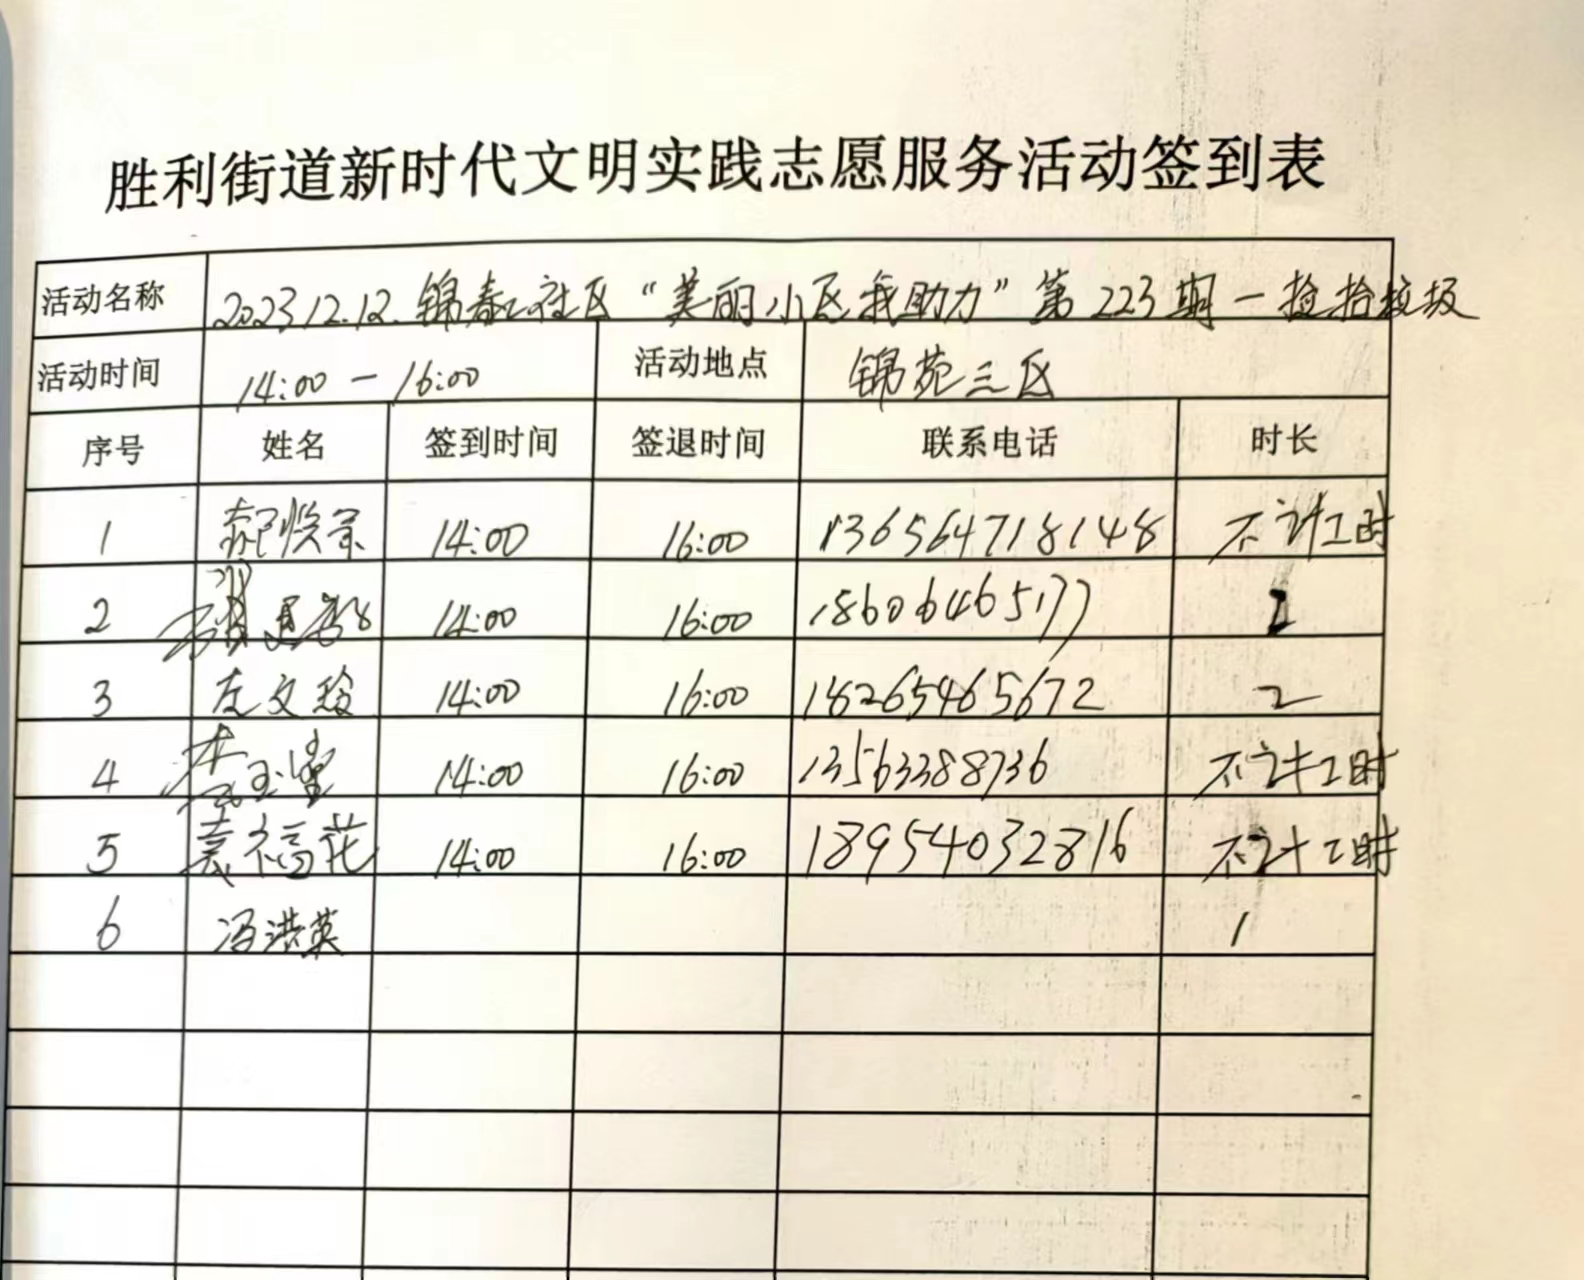 胜利街道新时代文明实践志愿服务活动签到表
活动名称 2023.12.12.锦春社区“美丽小区我助力”第223期—捡拾垃圾
活动时间 14:00 — 16:00 活动地点 锦苑三区
序号 姓名 签到时间 签退时间 联系电话 时长
1 14:00 16:00 136564718148 不计工时
2 14:00 16:00 18606465177 2
3 左文玲 14:00 16:00 18265465672 2
4 李玉堂 14:00 16:00 13563388736 不计工时
5 袁福花 14:00 16:00 18954032816 不计工时
6 冯洪英 1